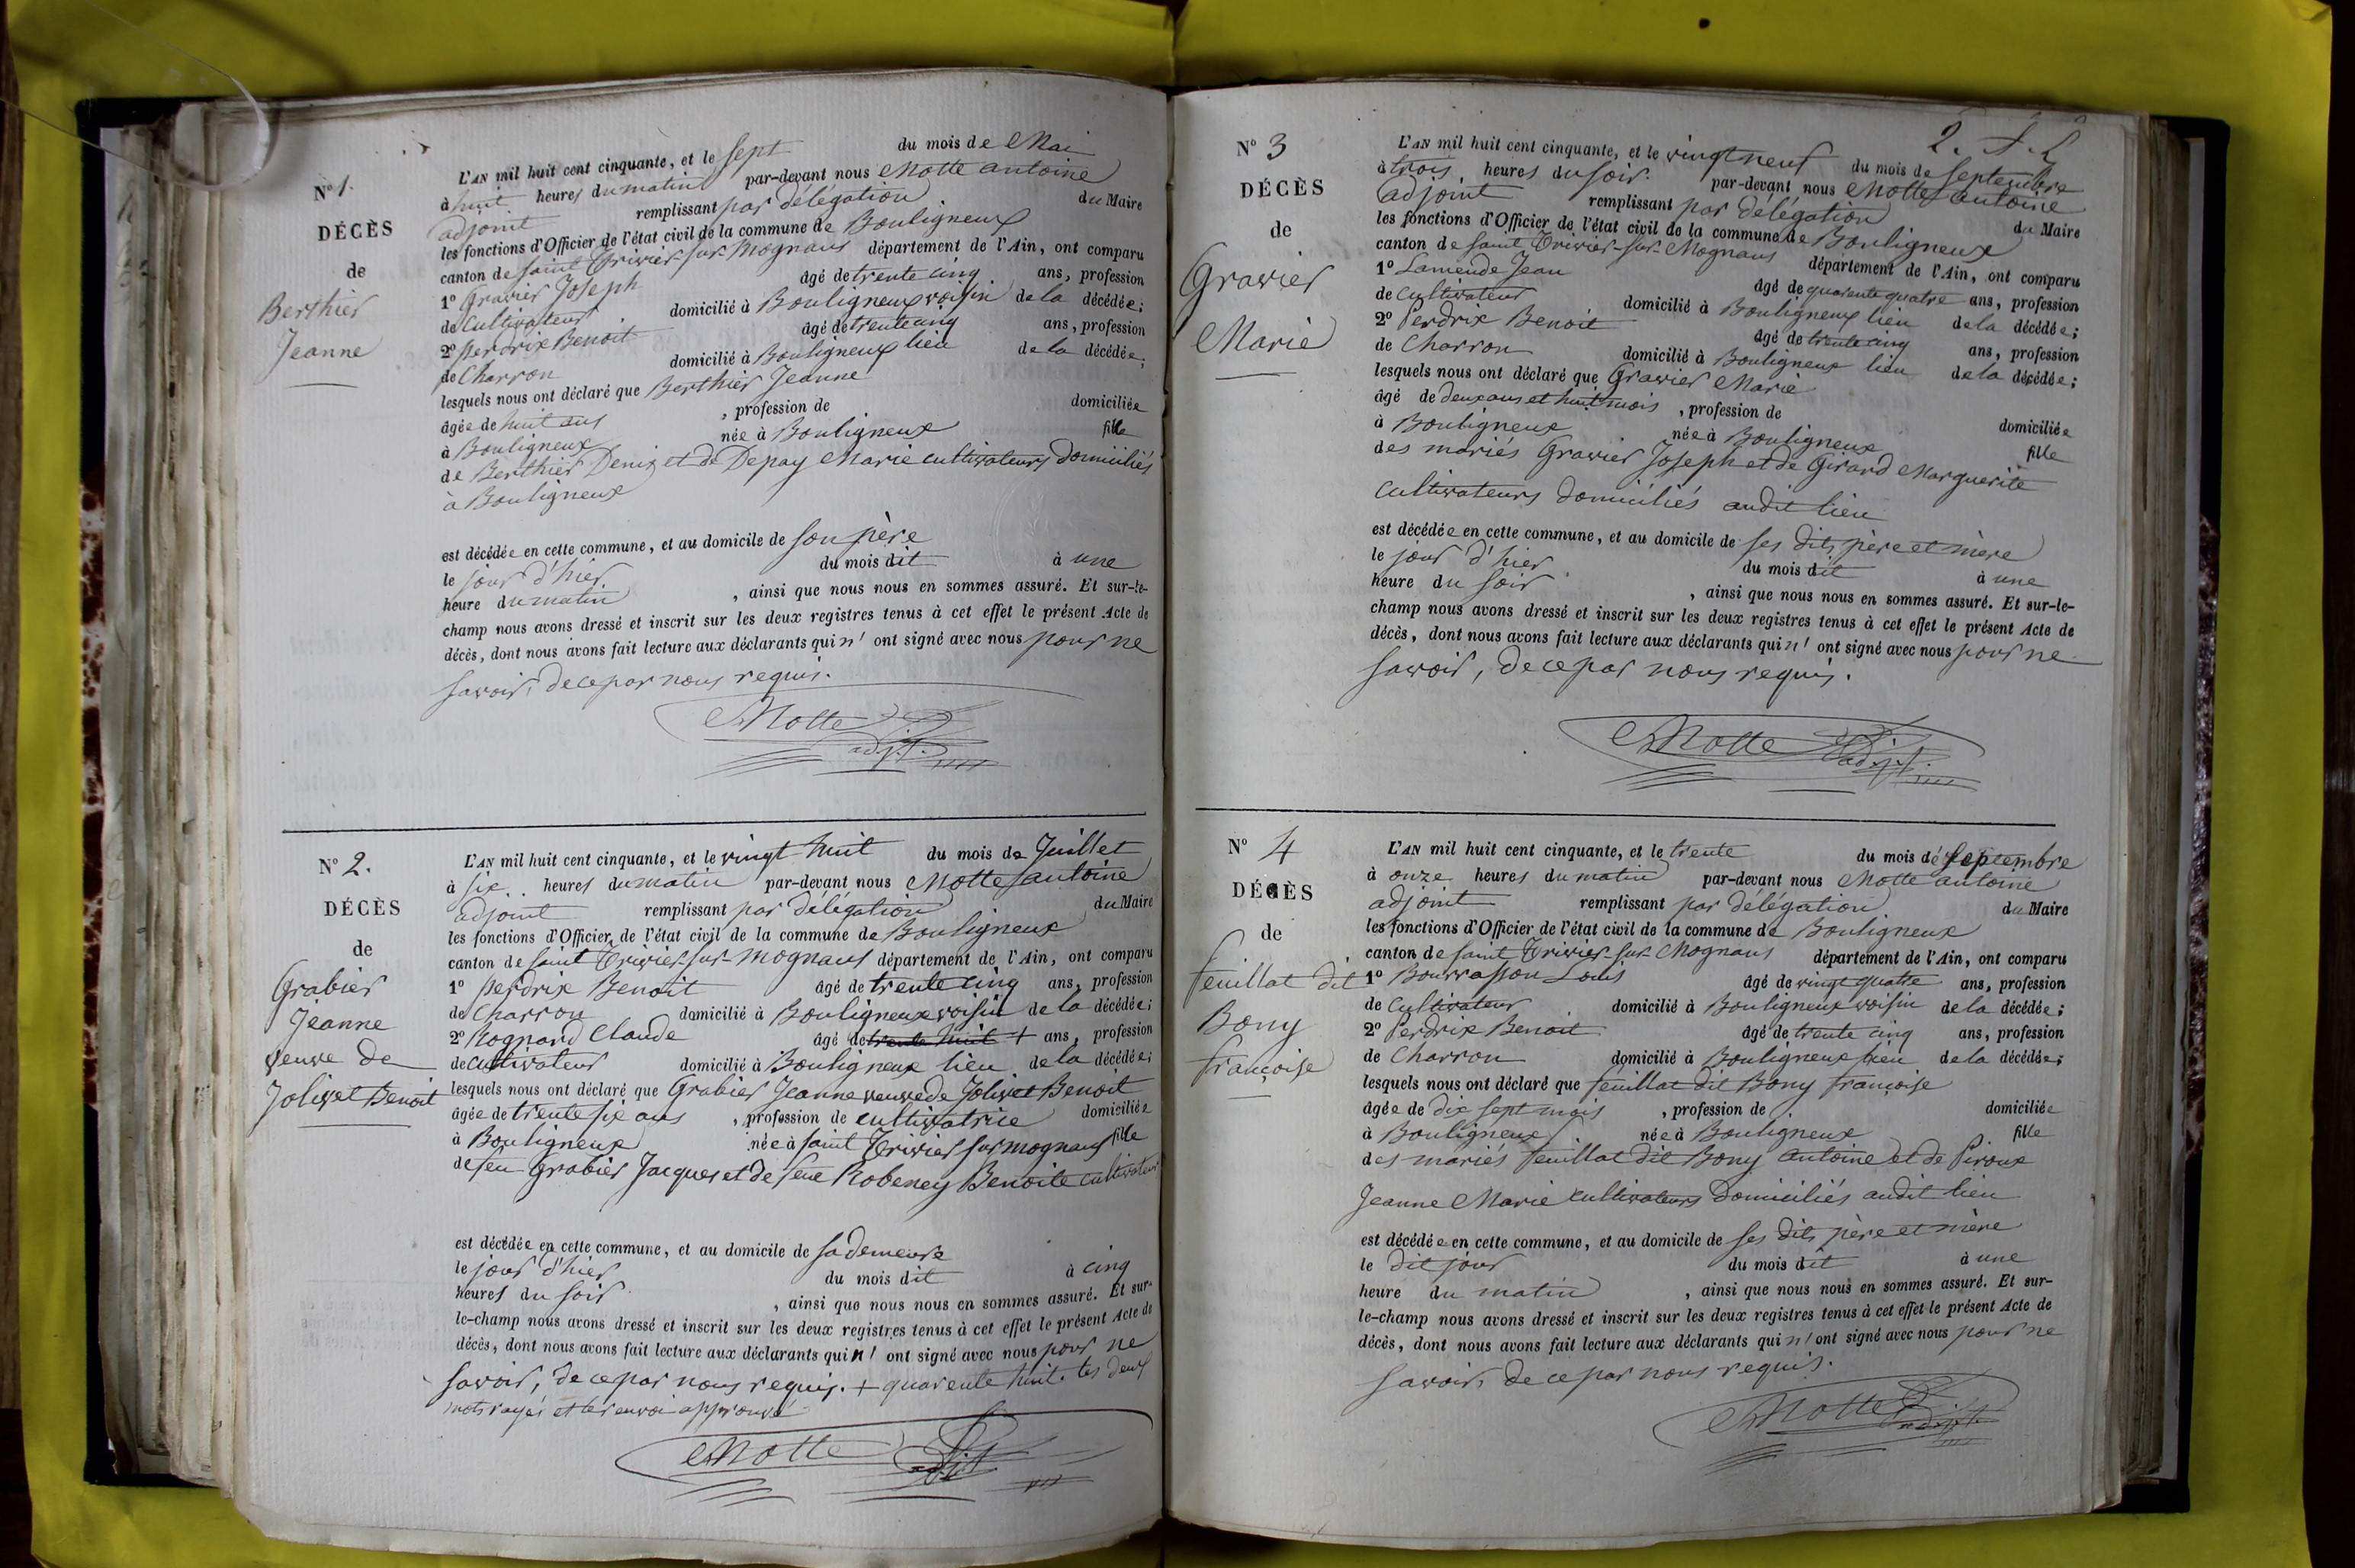 N° 1.
DÉCÈS
de
Berthier
Jeanne
L'AN mil huit cent cinquante, et le sept du mois de Mai
à huit heures du matin par-devant nous Motte antoine
adjoint remplissant par délégation du Maire
les fonctions d'Officier de l'état civil de la commune de Bouligneux
canton de saint Trivier sur Mognans département de l'Ain, ont comparu
1° Gravier Joseph âgé de trente cinq ans, profession
de Cultivateur domicilié à Bouligneux voisin de la décédée;
2° perdrix Benoit âgé de trente cinq ans, profession
de Charron domicilié à Bouligneux lieu de la décédée;
lesquels nous ont déclaré que Berthier Jeanne
âgée de huit ans , profession de domiciliée
à Bouligneux née à Bouligneux fille
de Berthier Denis et de Depay Marie cultivateurs domiciliés
à Bouligneux
est décédée en cette commune, et au domicile de son père
le jour d'hier du mois dit à une
heure du matin , ainsi que nous nous en sommes assuré. Et sur-le-
champ nous avons dressé et inscrit sur les deux registres tenus à cet effet le présent Acte de
décès, dont nous avons fait lecture aux déclarants qui n' ont signé avec nous pour ne
savoir, de ce par nous requis.
Motte
adj.t.
N° 2.
DÉCÈS
de
Grabier
Jeanne
veuve de
Jolivet Benoit
L'AN mil huit cent cinquante, et le vingt huit du mois de Juillet
à six heures du matin par-devant nous Motte antoine
adjoint remplissant par délégation du Maire
les fonctions d'Officier de l'état civil de la commune de Bouligneux
canton de saint Trivier-sur-Mognans département de l'Ain, ont comparu
1° perdrix Benoit âgé de trente cinq ans, profession
de Charron domicilié à Bouligneux voisin de la décédée;
2° Rognard Claude âgé de trente huit + ans, profession
de cultivateur domicilié à Bouligneux lieu de la décédée;
lesquels nous ont déclaré que Grabier Jeanne veuve de Jolivet Benoit
âgée de trente six ans , profession de cultivatrice domiciliée
à Bouligneux née à saint Trivier sur mognans fille
de feu Grabier Jacques et de feue Robeney Benoite cultivateurs
est décédée en cette commune, et au domicile de sa demeure
le jour d'hier du mois dit à cinq
heures du soir , ainsi que nous nous en sommes assuré. Et sur-
le-champ nous avons dressé et inscrit sur les deux registres tenus à cet effet le présent Acte de
décès, dont nous avons fait lecture aux déclarants qui n' ont signé avec nous pour ne
savoir, de ce par nous requis. + quarente huit. les deux
mots rayés et le renvoi approuvé
Motte adj.t.
2. f. 2
N° 3
DÉCÈS
de
Gravier
Marie
L'AN mil huit cent cinquante, et le vingt neuf du mois de septembre
à trois heures du soir. par-devant nous Motte antoine
adjoint remplissant par délégation du Maire
les fonctions d'Officier de l'état civil de la commune de Bouligneux
canton de saint Trivier-sur-Mognans département de l'Ain, ont comparu
1° Lamende Jean âgé de quarente quatre ans, profession
de cultivateur domicilié à Bouligneux lieu de la décédée;
2° Perdrix Benoit âgé de trente cinq ans, profession
de Charron domicilié à Bouligneux lieu de la décédée;
lesquels nous ont déclaré que Gravier Marie
âgé de deux ans et huit mois , profession de domiciliée
à Bouligneux née à Bouligneux fille
des mariés Gravier Joseph et de Girard Marguerite
cultivateurs domiciliés audit lieu
est décédée en cette commune, et au domicile de ses dits père et mère
le jour d'hier du mois dit à une
heure du soir , ainsi que nous nous en sommes assuré. Et sur-le-
champ nous avons dressé et inscrit sur les deux registres tenus à cet effet le présent Acte de
décès, dont nous avons fait lecture aux déclarants qui n' ont signé avec nous pour ne
savoir, de ce par nous requis.
Motte adj.t.
N° 4
DÉCÈS
de
feuillat dit
Bony
françoise
L'AN mil huit cent cinquante, et le trente du mois de septembre
à onze heures du matin par-devant nous Motte antoine
adjoint remplissant par délégation du Maire
les fonctions d'Officier de l'état civil de la commune de Bouligneux
canton de saint Trivier-sur-Mognans département de l'Ain, ont comparu
1° Bourrasson Louis âgé de vingt quatre ans, profession
de Cultivateur domicilié à Bouligneux voisin de la décédée;
2° Perdrix Benoit âgé de trente cinq ans, profession
de Charron domicilié à Bouligneux lieu de la décédée;
lesquels nous ont déclaré que feuillat dit Bony françoise
âgée de dix sept mois , profession de domiciliée
à Bouligneux née à Bouligneux fille
des mariés feuillat dit Bony antoine et de Piroux
Jeanne Marie cultivateurs domiciliés audit lieu
est décédée en cette commune, et au domicile de ses dits père et mère
le dit jour du mois dit à une
heure du matin , ainsi que nous nous en sommes assuré. Et sur-
le-champ nous avons dressé et inscrit sur les deux registres tenus à cet effet le présent Acte de
décès, dont nous avons fait lecture aux déclarants qui n' ont signé avec nous pour ne
savoir, de ce par nous requis.
Motte adj.t.